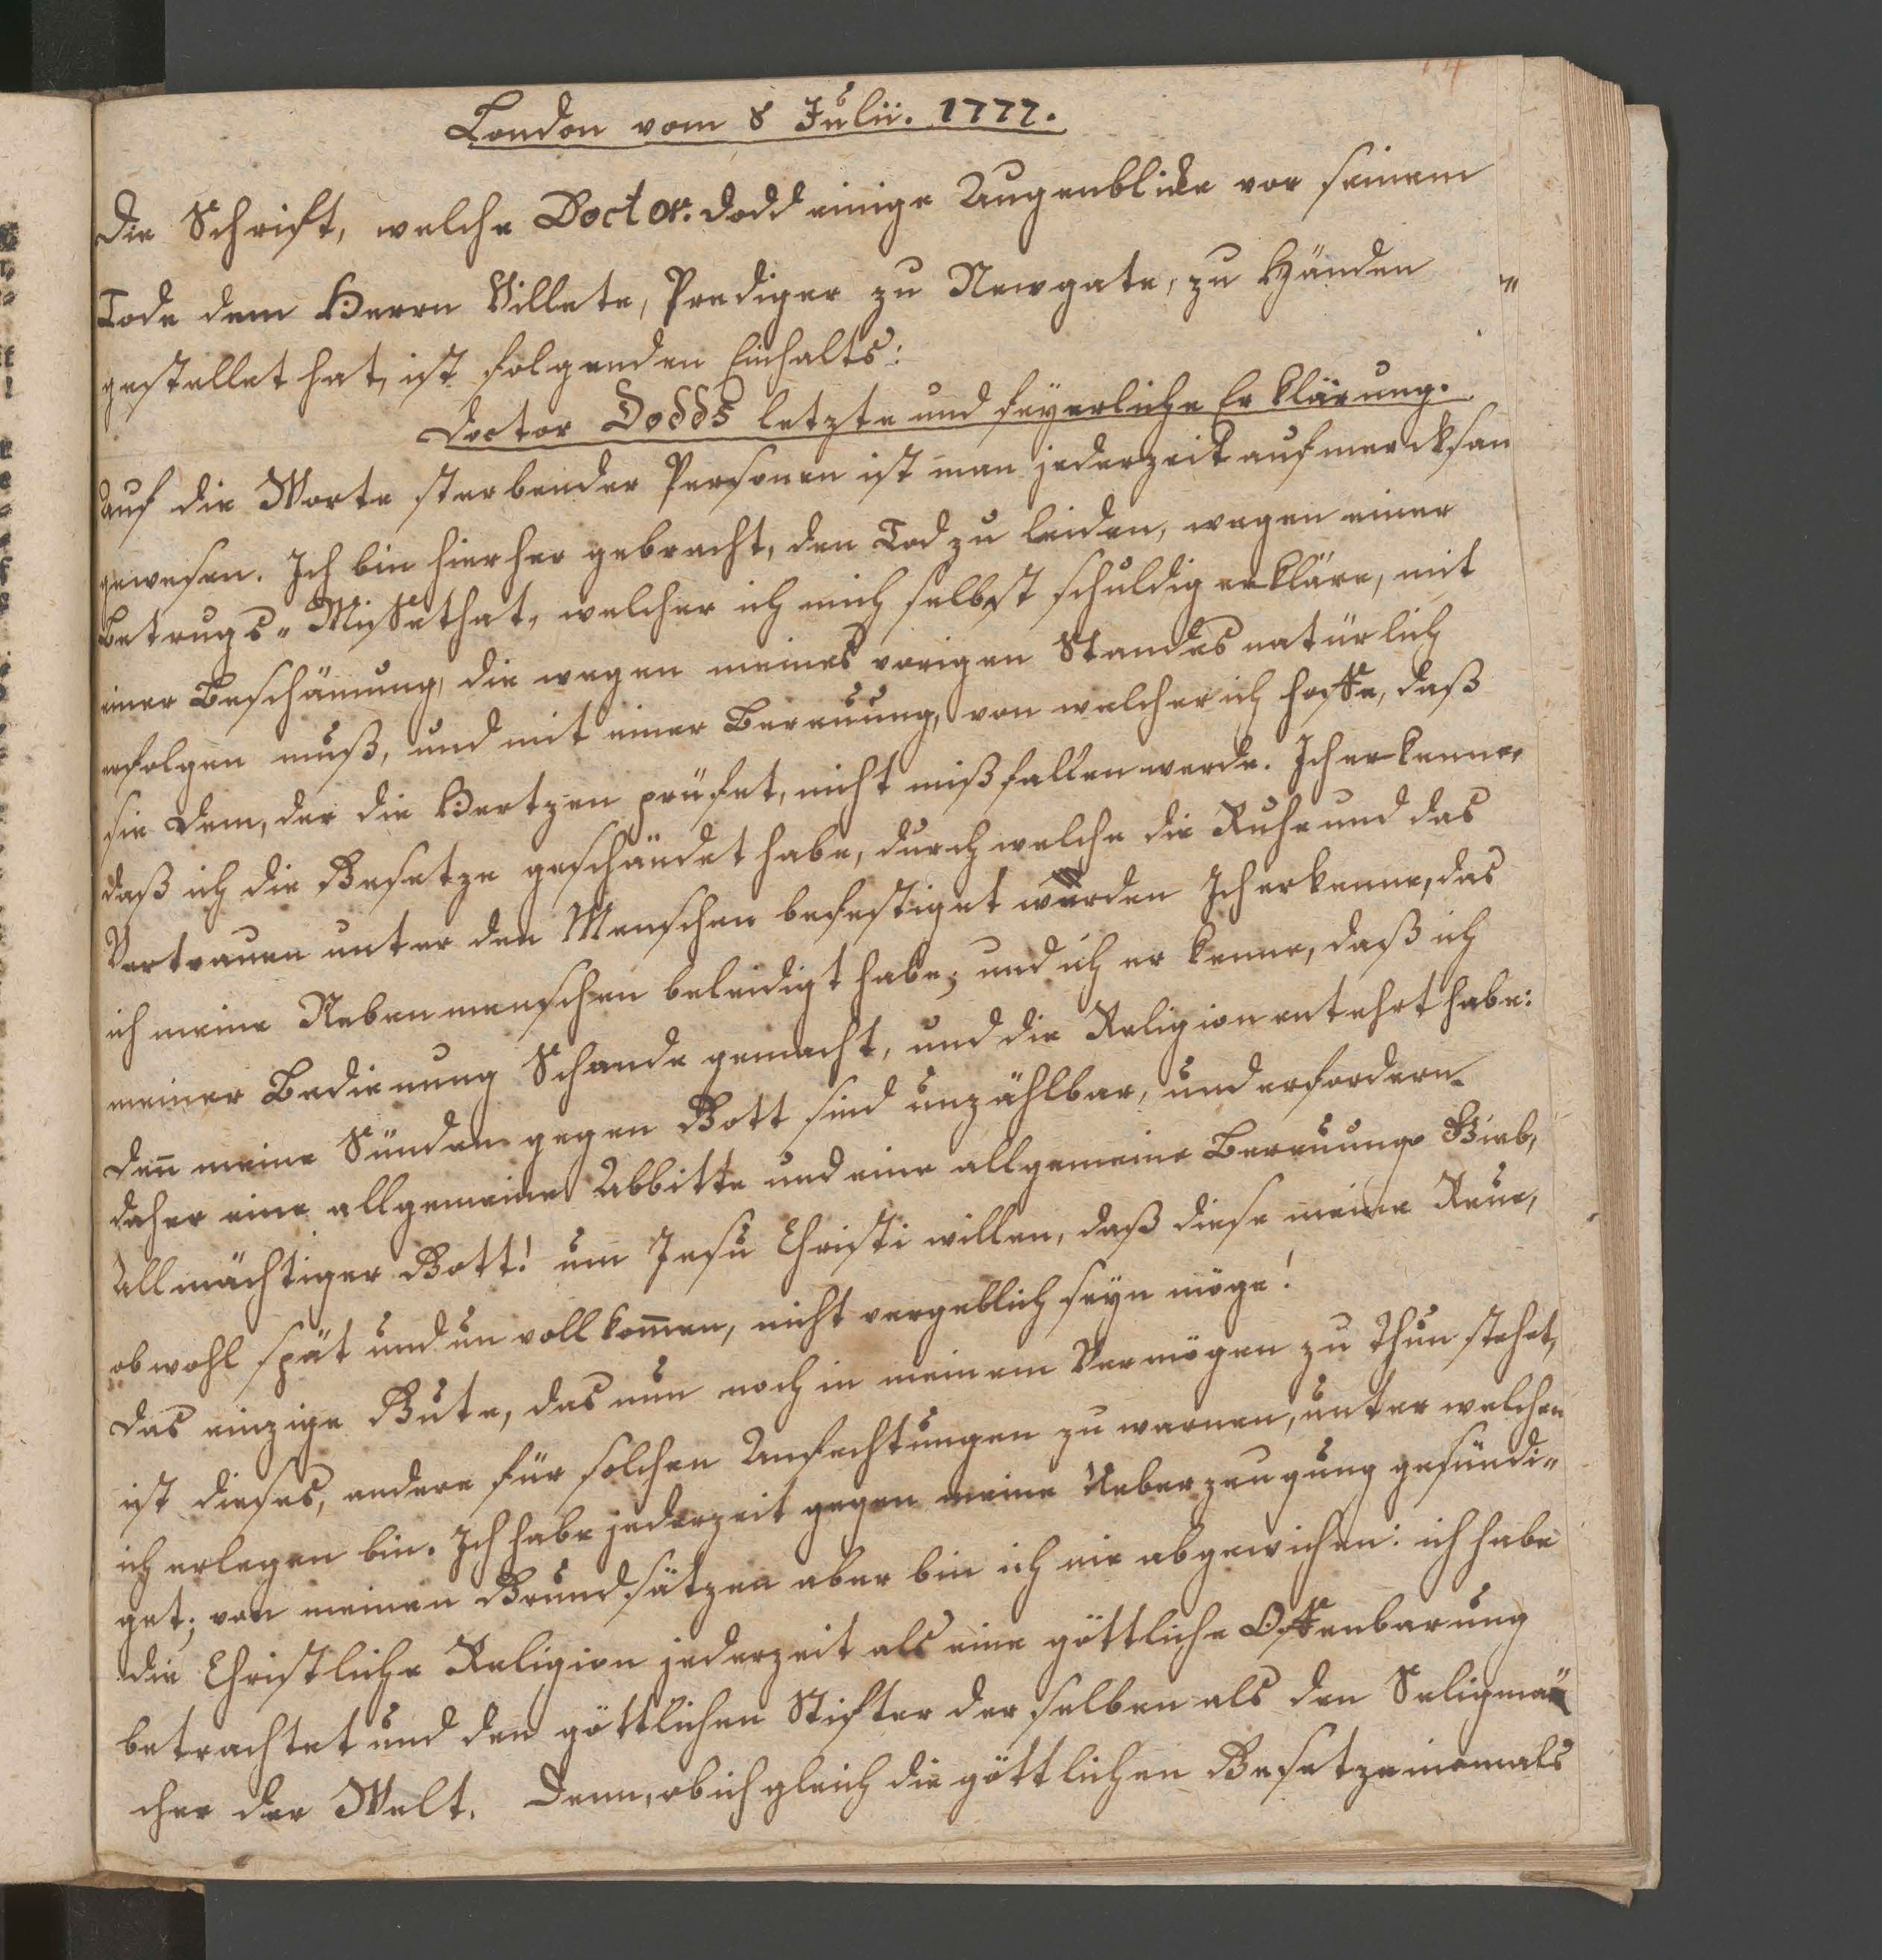 14
London vom 8 Julii. 1777.
Die Schrift, welche Doctor. Dodd einige Augenblicke vor seinem
Tode dem Herrn Villete, Prediger zu Newgate, zu Händen
gestellet hat, ist folgenden Einhalts:
Doctor Dodds letzte und feyerliche Erklärung.
Auf die Worte sterbender Personen ist man jederzeit aufmercksam
gewesen. Ich bin hierher gebracht, den Tod zu leiden, wegen einer
Betrugs-Missethat, welcher ich mich selbst schuldig erkläre, mit
einer Beschämung, die wegen meines vorigen Standes natürlich
erfolgen muß, und mit einer Bereuung, von welcher ich hoffe, daß
sie Dem, der die Hertzen prüfet, nicht mißfallen werde. Ich erkenne
daß ich die Gesetze geschändet habe, durch welche die Ruhe und das
Vertrauen unter den Menschen befestiget würden Ich erkenne, das
ich meine Nebenmenschen beleidigt habe; und ich erkenne, daß ich
meiner Bedienung Schande gemacht, und die Religion entehrt habe:
Den̄ meine Sünden gegen Gott sind unzählbar, und erfordern
daher eine allgemeine Abbitte und eine allgemeine Bereuung Gieb,
Allmächtiger Gott! um Jesu Christi willen, daß diese meine Reue,
obwohl spät und unvollkom̄en, nicht vergeblich seyn möge!
Das einzige Gute, das nun noch in meinem Vermögen zu thun stehet,
ist dieses, andere für solchen Anfechtungen zu warnen, unter welchen
ich erlegen bin. Ich habe jederzeit gegen meine Ueberzeugung gesündi-
get; von meinen Grundsätzen aber bin ich nie abgewichen: ich habe
die Christliche Religion jederzeit als eine göttliche Offenbarung
betrachtet und den göttlichen Stifter derselben als den Seligmä
cher der Welt. Denn, ob ich gleich die göttlichen Gesetze niemals